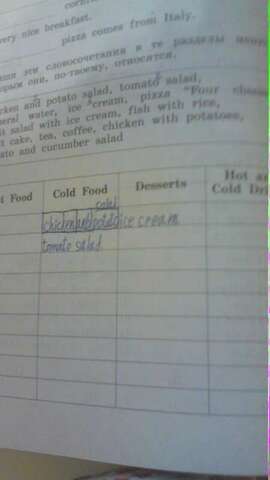 very nice breakfast.
pizza comes from Italy.
эти словосочетания в те разделы
они, по-твоему, относятся.
and potato salad, tomato salad,
water, ice cream, pizza "Four
salad with ice cream, fish with rice,
cake, tea, coffee, chicken with potatoes,
and cucumber salad
Food Cold Food Desserts Hot
Cold
salad
chicken and potato ice cream
tomato salad